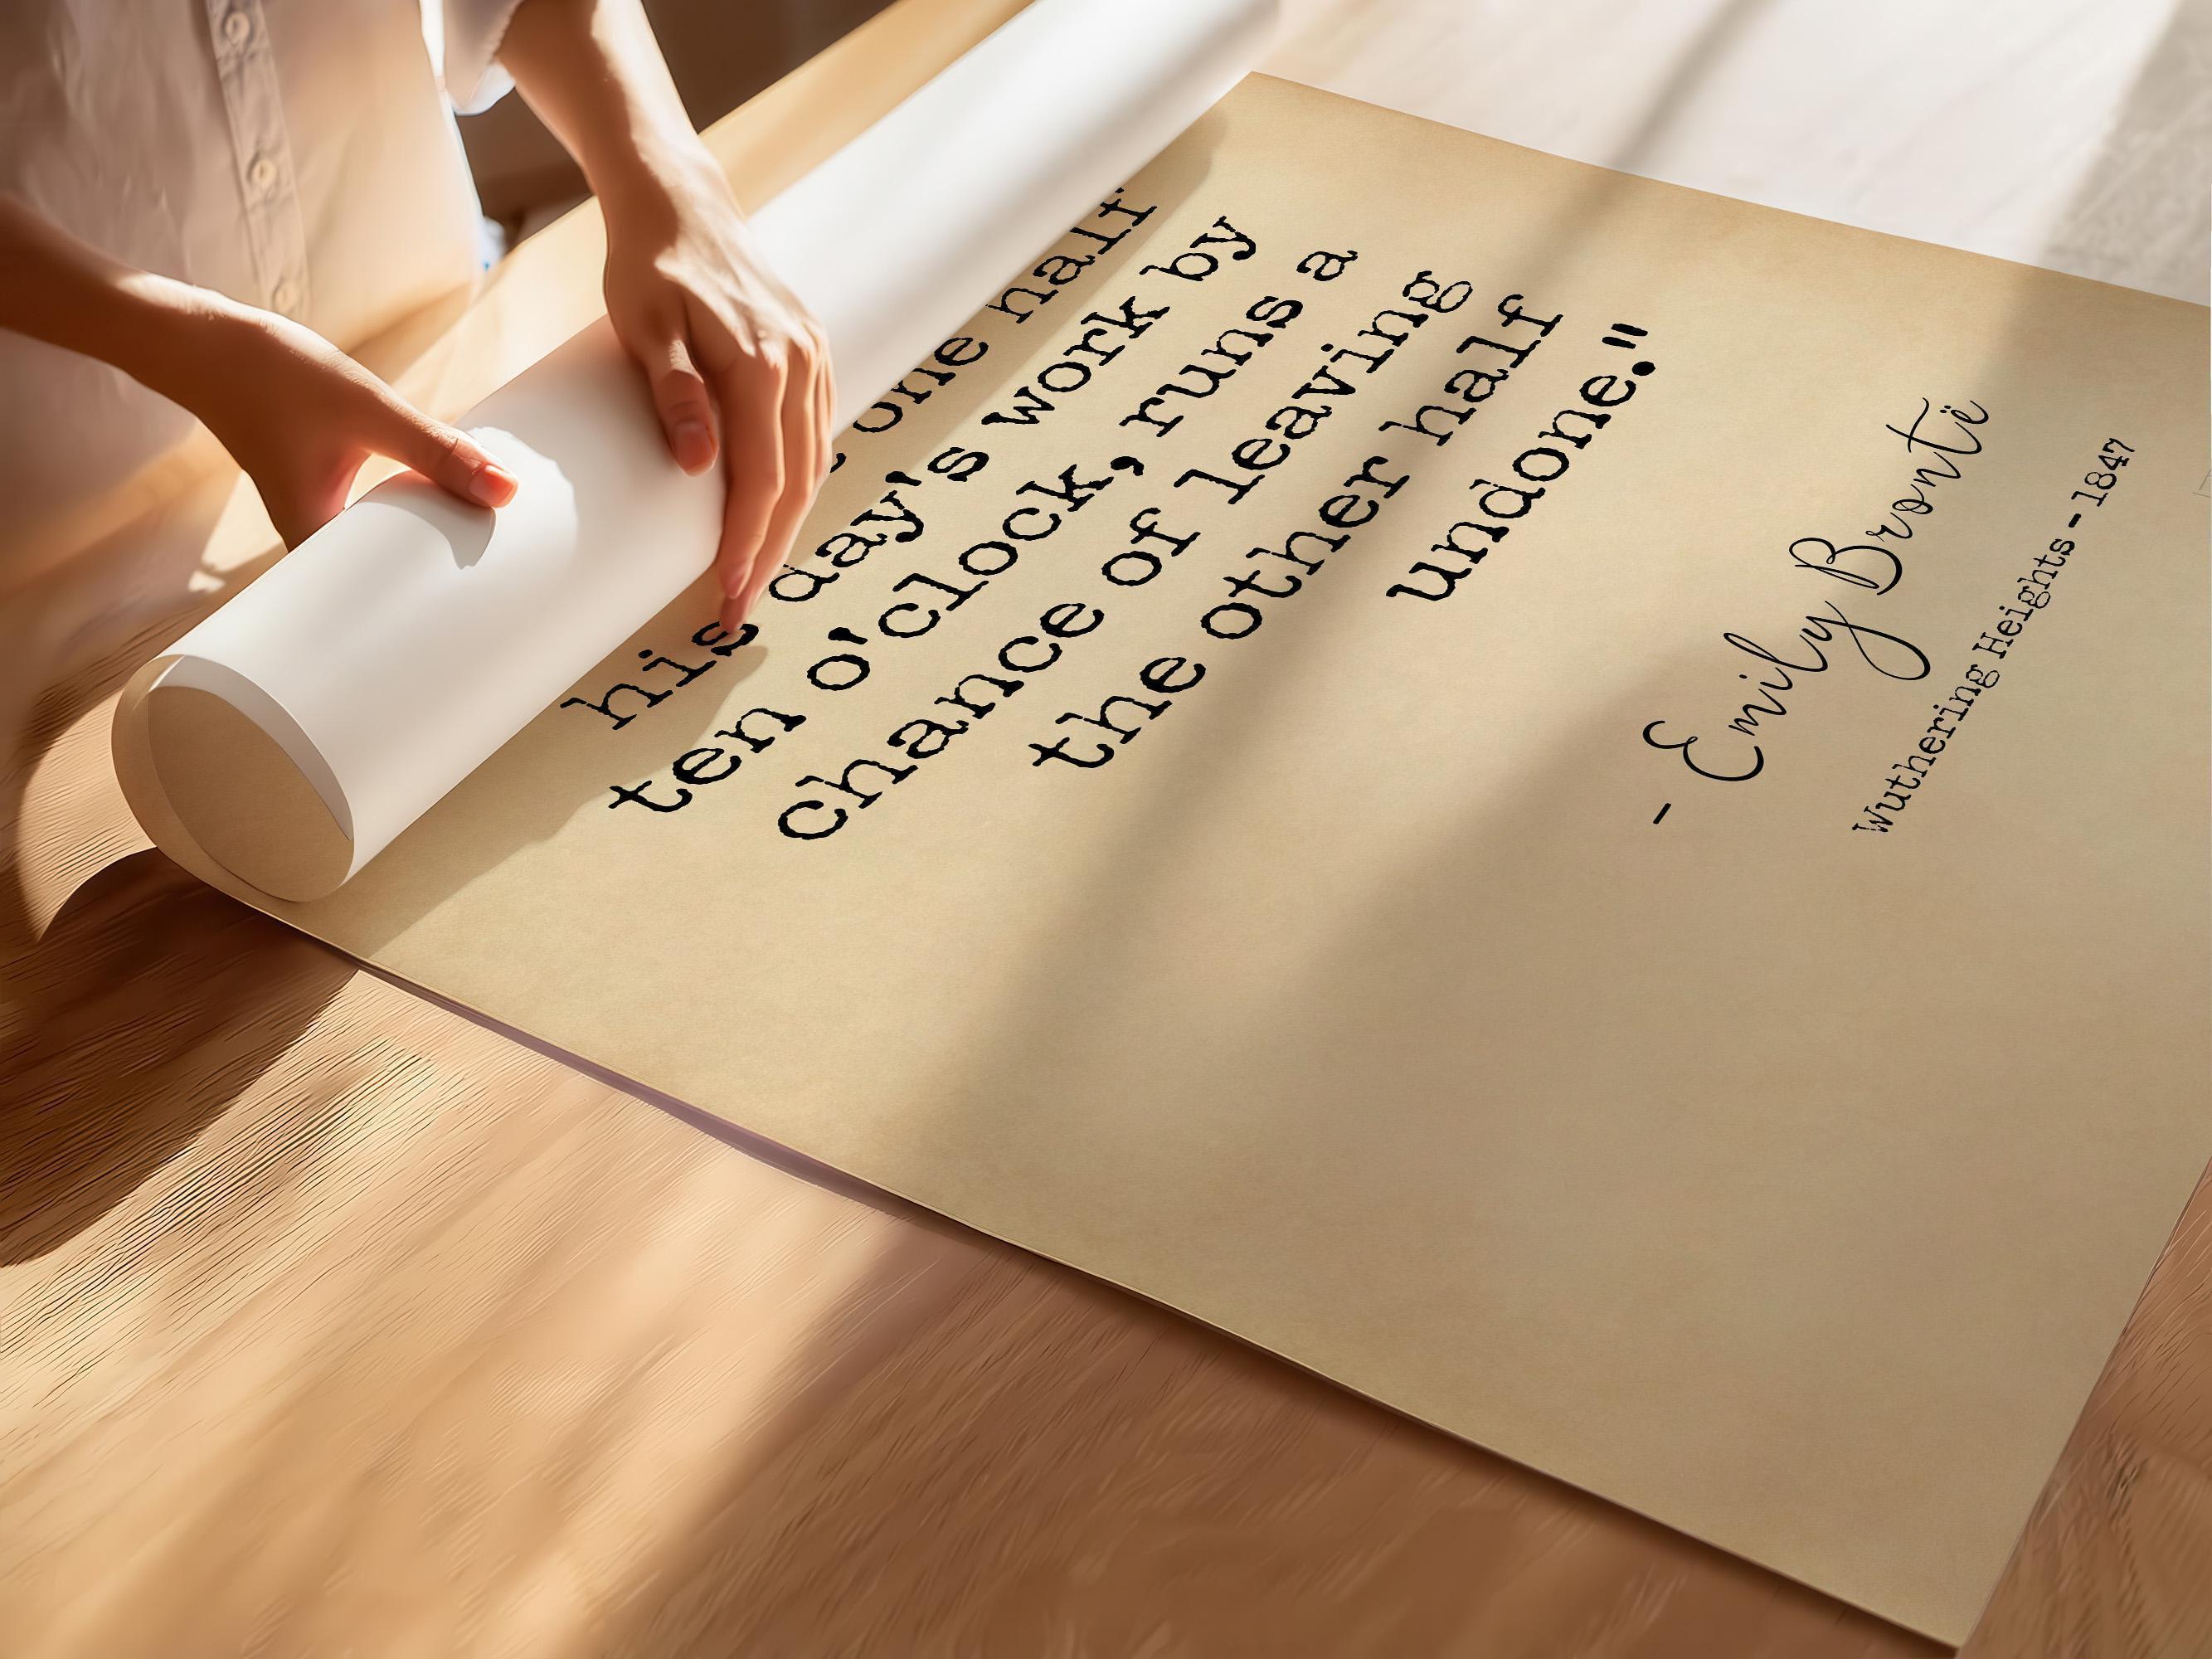 one half
his day's work by
ten o'clock, runs a
chance of leaving
the other half
undone."
- Emily Brontë
Wuthering Heights - 1847